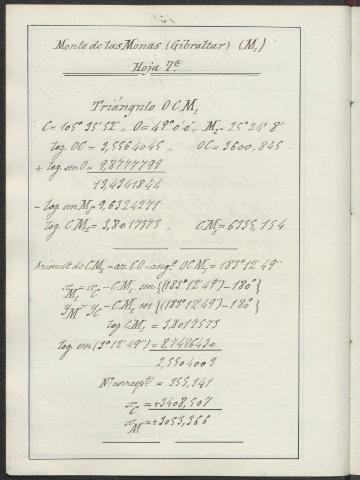 Monte de las Monas (Gibraltar) (M₁)
Hoja 7ª
Triángulo O C M₁
C = 105° 35' 52" „ O = 49° 0' 0" „ M₁ = 25° 24' 8"
log. OC = 3,5564045 „ OC = 3600,845
+ log. sen O = 9,8777799
13,4341844
- log. sen M₁ = 9,6324271
log. C M₁ = 3,8017573 „ C M₁ = 6335,154
Azimut de C M₁ = az. CO - ang.º O C M₁ = 183° 12' 49"
x M₁ = x C - C M₁ sen {(183° 12' 49") - 180°}
y M = y C - C M₁ cos {(183° 12' 49") - 180°}
log. C M₁ = 3,8017573
log. sen (3° 12' 49") = 8,7486430
2,5504003
Nº corresp.te = 355,141
x C = +3408,507
x M = +3053,366